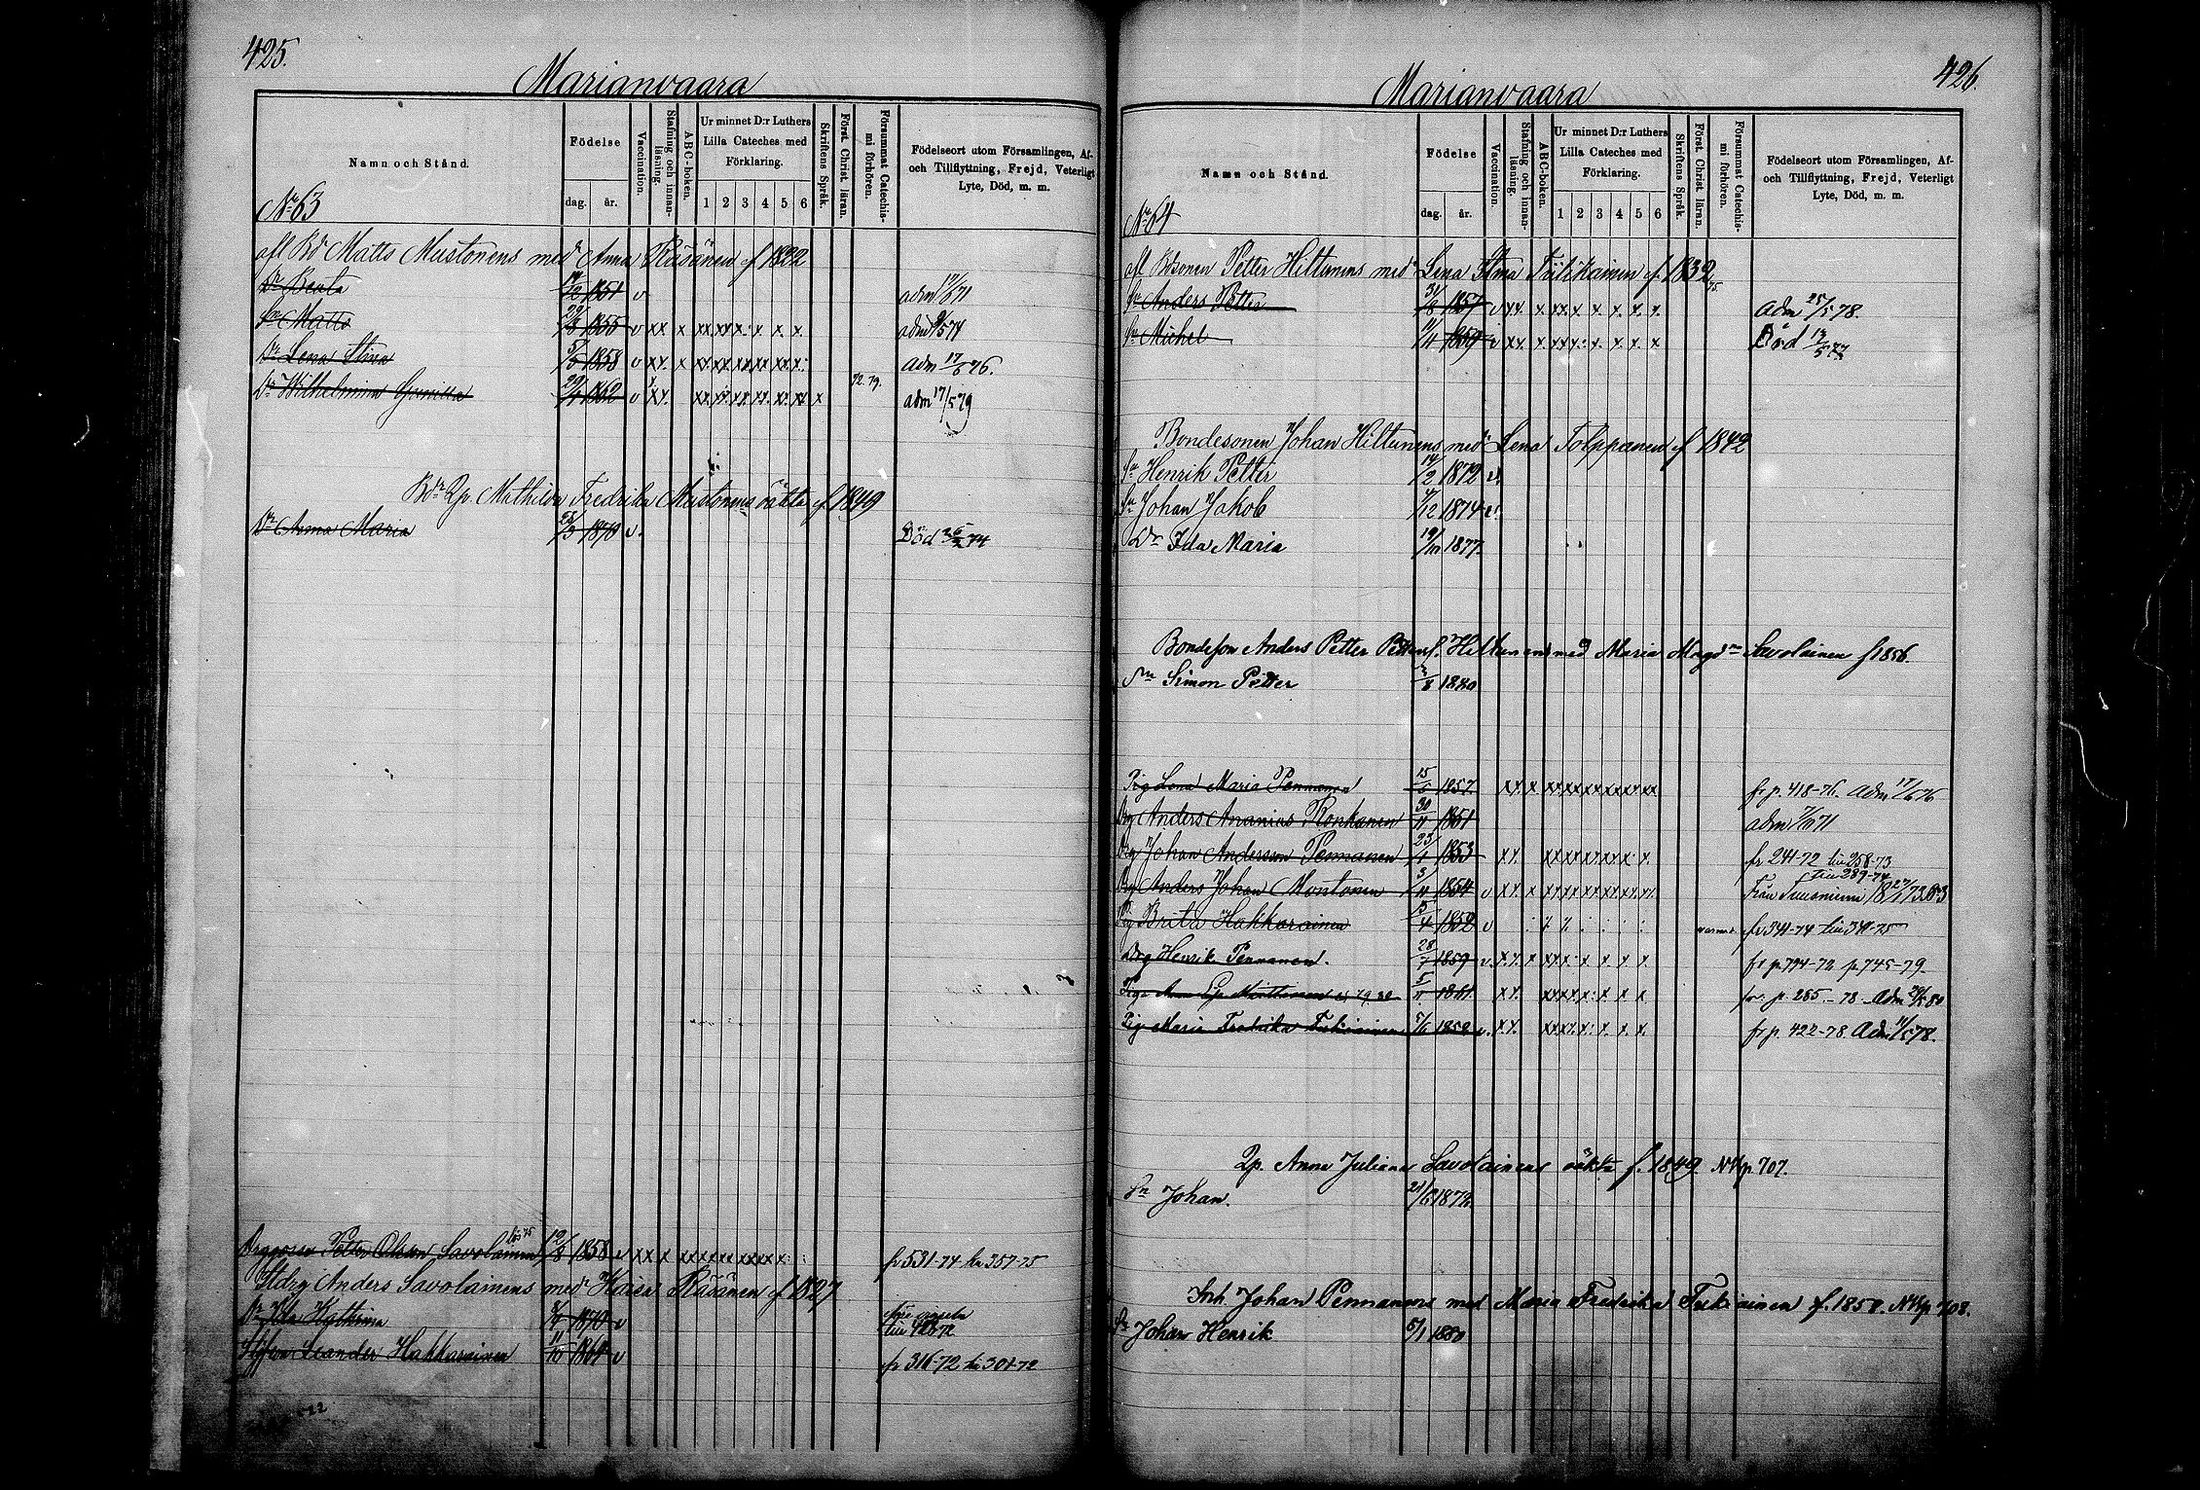 425.
Marianvaara
Namn och Stånd.
Födelse
dag. år.
Vaccination.
Stafning och innan-läsning.
ABC-boken.
Ur minnet D:r Luthers Lilla Cateches med Förklaring.
1 2 3 4 5 6
Skriftens Språk.
Först. Christ. läran.
Försummat Catechis-mi förhören.
Födelseort utom Församlingen, Af- och Tillflyttning, Frejd, Veterligt Lyte, Död, m. m.
No 63
afl Bd Matts Mustonens med Anna Räsänen f 1822
Dr Beata 1851 v adm 71
Sn Matts 29/8 1855 v xx x xx xx x x x adm 74
Dr Lena Stina 1858 v xx x xx xx xx xx xx x adm 17/6 76.
Dr Wilhelmina Gunilla 29/4 1862 v xx xx xx xx xx xx xx x 72. 79. adm 17/5 79
Bdr Qp Mathilda Fredrika Mustonens oäkta f 1849
Dr Anna Maria 1870 v. Död 74
Petter Olsson Savolainen 12/8 1858 v xx x x xx xx xx xx xx fr 531-74 tu 357-75
Anders Savolainens med Kaisa Räsänen f 1827
Dr Ida Kathrina 1870 v
Leander Hakkarainen 11/10 1864 v fr 316-72 tu 301-72
426.
Marianvaara
Namn och Stånd.
Födelse
dag. år.
Vaccination.
Stafning och innan-läsning.
ABC-boken.
Ur minnet D:r Luthers Lilla Cateches med Förklaring.
1 2 3 4 5 6
Skriftens Språk.
Först. Christ läran.
Försummat Catechis-mi förhören.
Födelseort utom Församlingen, Af- och Tillflyttning, Frejd, Veterligt Lyte, Död, m. m.
No 64
afl Bdsonen Petter Hiltunens med Lena Stina Tiilikainen f. 1832
Sn Anders Petter 31/8 1857 v xx x xx x x x x x 75 adm 25/5 78.
Sn Michel 1859 v xx x xxx x x x x Död 13/5 77
Bondesonen Johan Hiltunens med Lena Tolppanen f 1842
Sn Henrik Petter 14/2 1872 v
Sn Johan Jakob 4/12 1874 v
Dr Ida Maria 19/10 1877.
Bondeson Anders Petter Petters. Hiltunens med Maria Magdna Savolainen f 1856.
Sn Simon Petter 1880
Pig Lena Maria Pennanen 15/5 1857 xx x xx xx xx xx xx fr p. 418-76. adm 17/6 76
Drg Anders Ananias Ronkanen 30/11 1851 adm 71
Drg Johan Andersson Pennanen 23/1 1853 xx xx xx xx xx x fr 241-72 tu 258-73
Drg Anders Johan Montonen 3/11 1854 v xx x xx xx xx xx xx tu 289-74
Pig Brita Hakkarainen 1852 v fr 341-74 tu 341-75
Drg Henrik Pennanen. 28/7 1859 v xx x xxx x x x x fr p 794-72 p 745-79.
5/11 1861 xx xxxx x x x for p. 285.-78. Adm 80
Pig Maria Fredrika Tukiainen 5/6 1858 v. xx xxx x x x x fr p. 422-78. Adm 78.
Qp. Anna Juliana Savolainens oäkta f. 1849 NKp 707.
Sn Johan. 1872
Inh. Johan Pennanens med Maria Fredrika Tukiainen f. 1858. NKp 708.
Sn Johan Henrik 6/1 1880